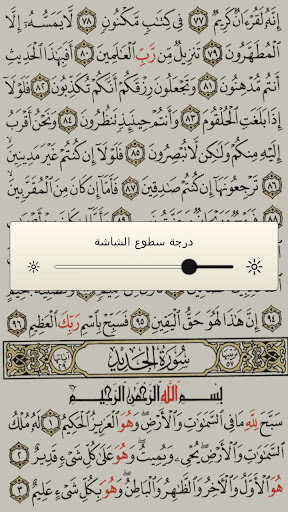 إِنَّهُ لَقُرْءَانٌ كَرِيمٌ ٧٧ فِي كِتَٰبٍ مَّكْنُونٍ ٧٨ لَّا يَمَسُّهُ إِلَّا
الْمُطَهَّرُونَ ٧٩ تَنزِيلٌ مِّن رَّبِّ الْعَٰلَمِينَ ٨٠ أَفَبِهَٰذَا الْحَدِيثِ
أَنتُم مُّدْهِنُونَ ٨١ وَتَجْعَلُونَ رِزْقَكُمْ أَنَّكُمْ تُكَذِّبُونَ ٨٢ فَلَوْلَا
إِذَا بَلَغَتِ الْحُلْقُومَ ٨٣ وَأَنتُمْ حِينَئِذٍ تَنظُرُونَ ٨٤ وَنَحْنُ أَقْرَبُ
إِلَيْهِ مِنكُمْ وَلَٰكِن لَّا تُبْصِرُونَ ٨٥ فَلَوْلَا إِن كُنتُمْ غَيْرَ مَدِينِينَ
٨٦ تَرْجِعُونَهَا إِن كُنتُمْ صَٰدِقِينَ ٨٧ فَأَمَّا إِن كَانَ مِنَ الْمُقَرَّبِينَ
٨٨ ٨٩
درجة سطوع الشاشة
٩٤ إِنَّ هَٰذَا لَهُوَ حَقُّ الْيَقِينِ ٩٥ فَسَبِّحْ بِاسْمِ رَبِّكَ الْعَظِيمِ ٩٦
ترتيبها ٥٧ سُورَةُ الْحَدِيدِ آياتها ٢٩
بِسْمِ اللَّهِ الرَّحْمَٰنِ الرَّحِيمِ
سَبَّحَ لِلَّهِ مَا فِي السَّمَٰوَٰتِ وَالْأَرْضِ وَهُوَ الْعَزِيزُ الْحَكِيمُ ١ لَهُ مُلْكُ
السَّمَٰوَٰتِ وَالْأَرْضِ يُحْيِي وَيُمِيتُ وَهُوَ عَلَىٰ كُلِّ شَيْءٍ قَدِيرٌ ٢
هُوَ الْأَوَّلُ وَالْآخِرُ وَالظَّٰهِرُ وَالْبَاطِنُ وَهُوَ بِكُلِّ شَيْءٍ عَلِيمٌ ٣